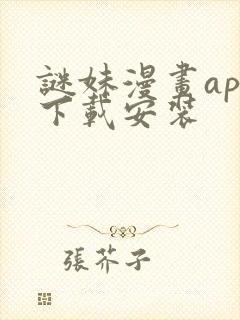 謎妹漫畫ap
下載安裝
張芥子